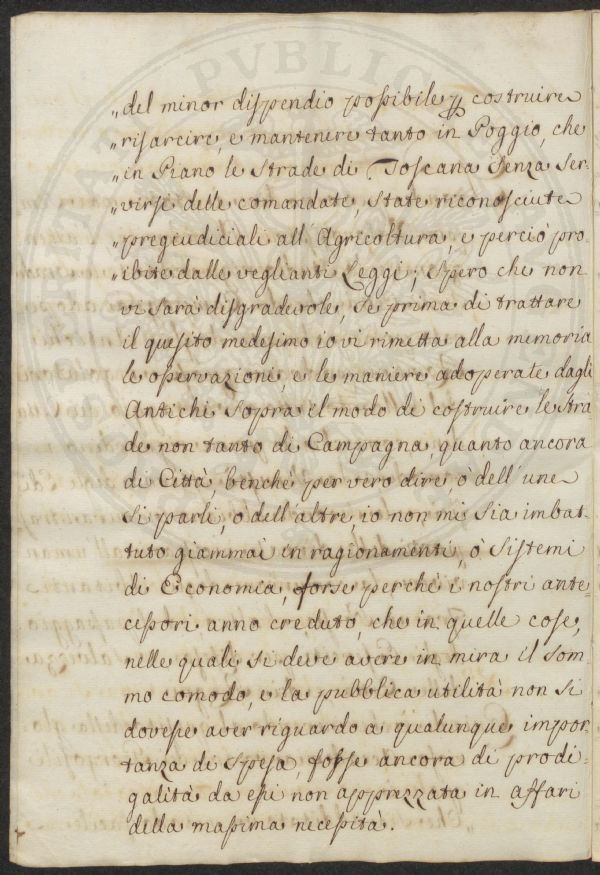 „del minor dispendio possibile p costruire
„risarcire, e mantenere tanto in Poggio, che
„in Piano le strade di Toscana senza ser-
„virsi delle comandate, state riconosciute
„pregiudiciali all'Agricoltura, e perciò pro-
„ibite dalle veglianti Leggi; spero che non
vi sarà disgradevole, se prima di trattare
il quesito medesimo io vi rimetta alla memoria
le osservazioni, e le maniere adoperate dagli
Antichi sopra il modo di costruire le stra-
de non tanto di Campagna, quanto ancora
di Città, benchè per vero dire, ò dell'une
si parli, o dell'altre, io non mi sia imbat-
tuto giammai in ragionamenti, ò sistemi
di Economia, forse perchè i nostri ante-
cessori anno creduto, che in quelle cose,
nelle quali si deve avere in mira il som-
mo comodo, e la pubblica utilità non si
dovesse aver riguardo a qualunque impor-
tanza di spesa, fosse ancora di prodi-
galità da essi non apprezzata in affari
della massima necessità.